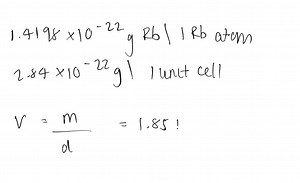 1.4198 x10^-22 g Rb | 1 Rb atom
2.84 x10^-22 g | 1 unit cell
V = m/d = 1.85!